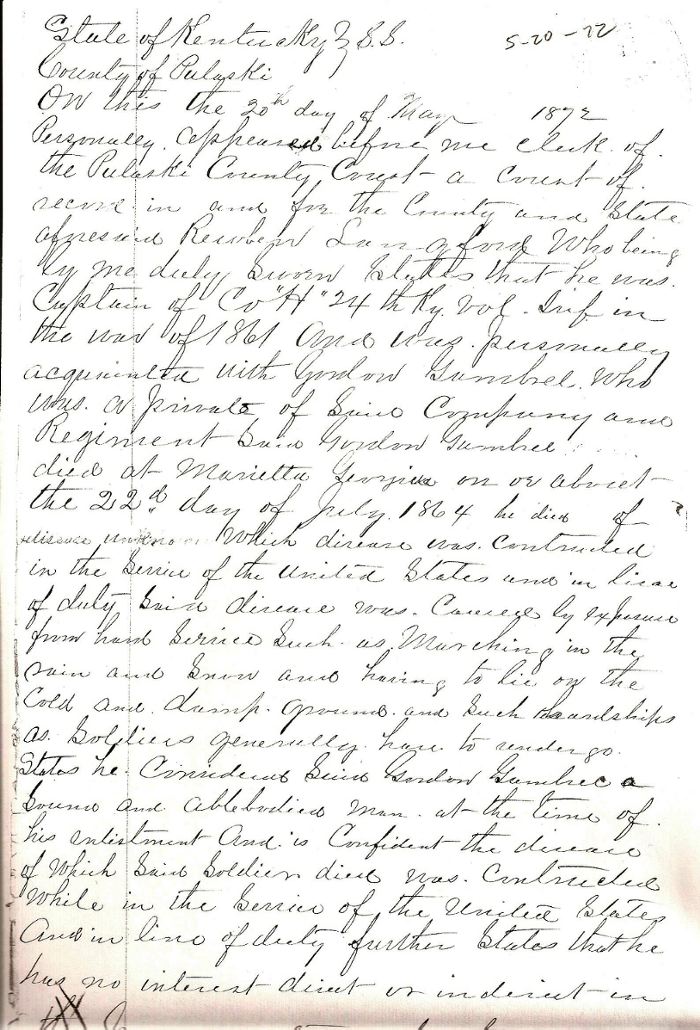 State of Kentucky } S.S.
5-20-72
County of Pulaski
On this the 20th day of May 1872
Personally appeared before me clerk of
the Pulaski County Court a court of
record in and for the County and State
aforesaid Reuben Langford Who being
by me duly Sworn States that he was
Captain of Co "H" 24th Ky. Vol. Inf in
the war of 1861 and was personally
acquainted with Gordon Gambrel. Who
was a private of Said Company and
Regiment Said Gordon Gambrel
died at Marietta Georgia on or about
the 22d day of July 1864 he died of
disease unknown Which disease was Contracted
in the Service of the United States and in line
of duty Said disease was Caused by exposure
from hard Service Such as Marching in the
rain and Snow and having to lie on the
Cold and damp ground and Such hardships
as Soldiers generally have to undergo
States he Considered Said Gordon Gambrel a
Sound and ablebodied man at the time of
his enlistment And is Confident the disease
of Which Said Soldier died was Contracted
While in the Service of the United States
And in line of duty further States that he
has no interest direct or indirect in